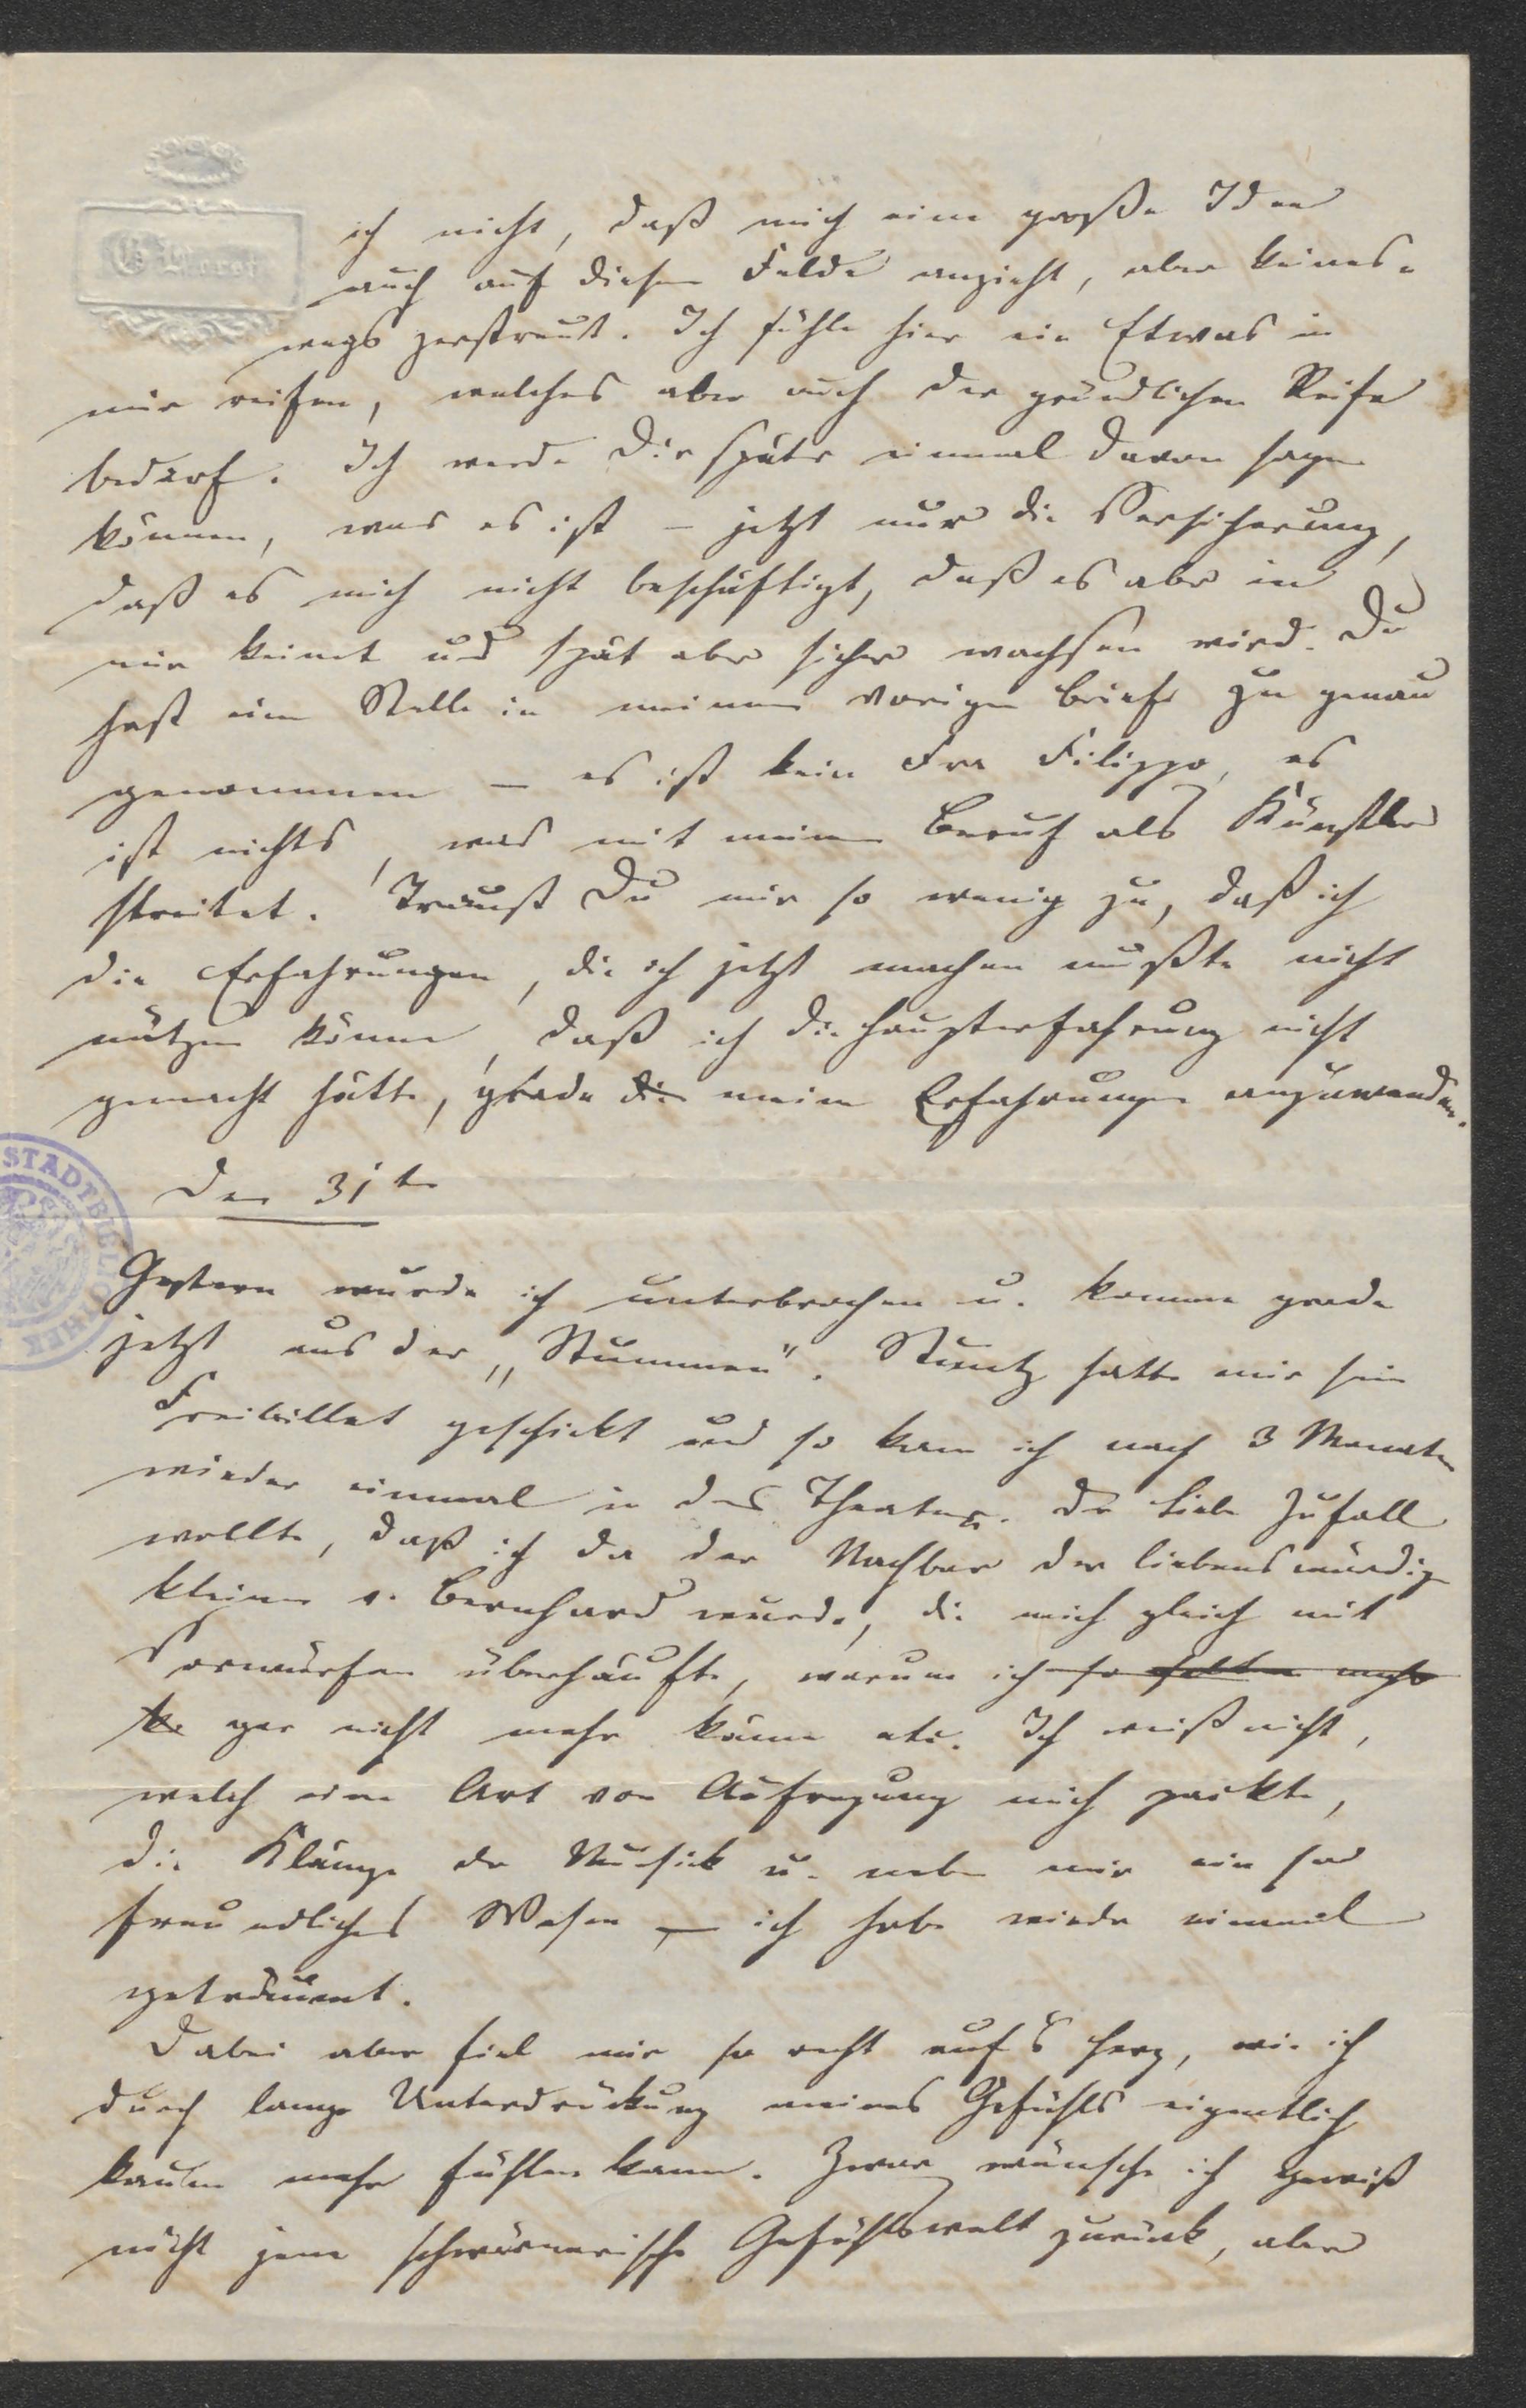 ich nicht, daß mich eine große Idee
auch auf diesem Felde anzieht, aber keines-
wegs zerstreut. Ich fühle hier ein Etwas in
mir reifen, welches aber auch der gründlichen Reife
bedarf. Ich werde Dir später einmal davon sagen
können, was es ist – jetzt nur die Versicherung,
daß es mich nicht beschäftigt, daß es aber in
mir keimt und spät aber sicher wachsen wird. Du
hast eine Stelle in meinem vorigen Briefe zu genau
genommen – es ist kein Fra Filippo, es
ist nichts, was mit meinem Beruf als Künstler
streitet. Traust Du mir so wenig zu, daß ich
die Erfahrungen, die ich jetzt machen mußte nicht
nützen könne, daß ich die Haupterfahrung nicht
gemacht hätte, grade die meine Erfahrungen anzuwenden.
Den 31ten
Gestern wurde ich unterbrochen u. komme grade
jetzt aus der „Stummen". Stuntz hatte mir sein
Freibillet geschickt und so kam ich nach 3 Monaten
wieder einmal in das Theater. Der liebe Zufall
wollte, daß ich da der Nachbar der liebenswürdigen
kleinen v. Bernhard wurde, die mich gleich mit
Vorwürfen überhäufte, warum ich so selten mehr
gar nicht mehr käme etc. Ich weiß nicht,
welch eine Art von Aufregung mich packte,
die Klänge der Musick u. neben mir ein so
freundliches Wesen – ich habe wieder einmal
geträumt.
Dabei aber fiel mir so recht auf's Herz, wie ich
durch lange Unterdrückung meines Gefühls eigentlich
kaum mehr fühlen kann. Zwar wünsche ich gewiß
nicht jene schwärmerische Gefühlswelt zurück, aber
STADTBIBLIOTHEK